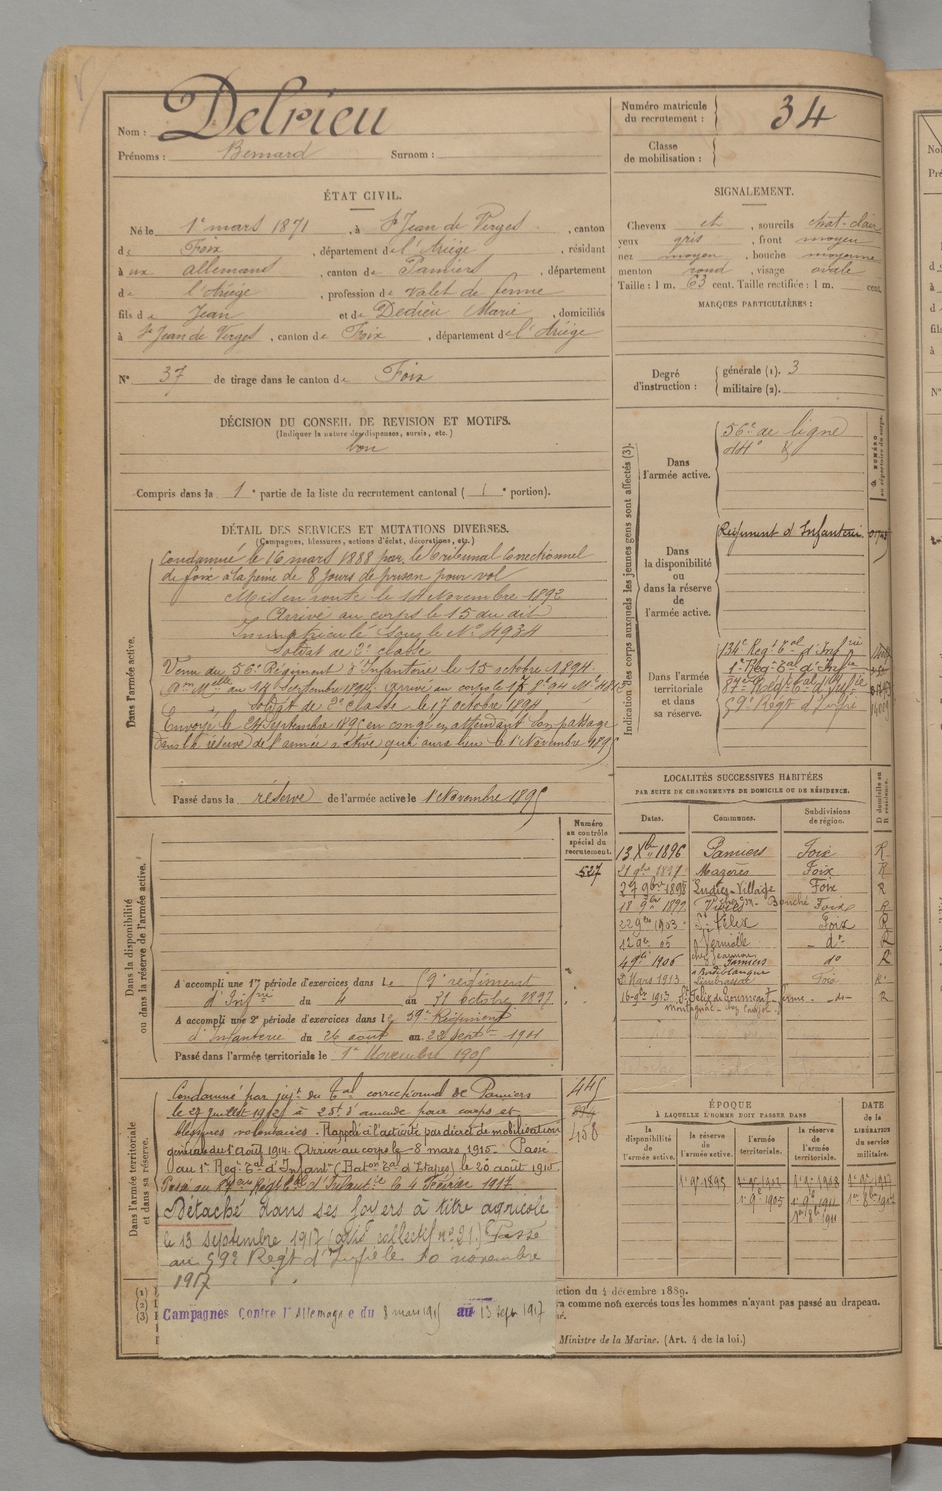 Nom : Delrieu
Prénoms : Bernard Surnom :
Numéro matricule du recrutement : 34
Classe de mobilisation :
ÉTAT CIVIL.
Né le 1er mars 1871, à St Jean de Verges, canton
de Foix, département de l'Ariège, résidant
à aux allemans, canton de Pamiers, département
de l'Ariège, profession de valet de ferme
fils de Jean et de Dedieu Marie, domiciliés
à St Jean de Verges, canton de Foix, département de l'Ariège
N° 37 de tirage dans le canton de Foix
SIGNALEMENT.
Cheveux et, sourcils chat-clair
yeux gris, front moyen
nez moyen, bouche moyenne
menton rond, visage ovale
Taille : 1 m. 63 cent. Taille rectifiée : 1 m. cent.
MARQUES PARTICULIÈRES :
Degré d'instruction : générale (1). 3
militaire (2).
DÉCISION DU CONSEIL DE REVISION ET MOTIFS.
(Indiquer la nature des dispenses, sursis, etc.)
bon
Compris dans la 1e partie de la liste du recrutement cantonal ( 1e portion).
DÉTAIL DES SERVICES ET MUTATIONS DIVERSES.
(Campagnes, blessures, actions d'éclat, décorations, etc.)
Dans l'armée active.
Condamné le 16 mars 1888 par le Tribunal Correctionnel
de foix à la peine de 8 jours de prison pour vol
Mis en route le 14 Novembre 1892
Arrivé au corps le 15 du dit
Immatriculé sous le No 4934
Soldat de 2e classe
Venu du 56e Régiment d'Infanterie le 15 octobre 1894.
soldat de 2e Classe le 17 octobre 1894
Envoyé le 24 Septembre 1895 en congé en attendant son passage
dans la réserve de l'armée active qui aura lieu le 1er Novembre 1895
Passé dans la réserve de l'armée active le 1er Novembre 1895
Indication des corps auxquels les jeunes gens sont affectés (3).
NUMÉRO au répertoire du corps.
Dans l'armée active.
56e de ligne
44e
Dans la disponibilité ou dans la réserve de l'armée active.
Régiment d'Infanterie
Dans l'armée territoriale et dans sa réserve.
134e Regt Tal d'Infrie
1er Reg. Tal d'Infie
87e Régt Tal d'Infie
59e Regt d'Infie
LOCALITÉS SUCCESSIVES HABITÉES
PAR SUITE DE CHANGEMENTS DE DOMICILE OU DE RÉSIDENCE.
Dates. Communes. Subdivisions de région. D domicile ou R résidence.
13 Xbre 1896 Pamiers Foix R
21 9bre 1897 Mazères Foix R
27 9bre 1898 Ludiès-Village Foix R
18 9bre 1899 Foix R
22 9bre 1903 St Félix Foix R
12 9bre 05 Verniolle - do - R
1906 Pamiers do R
Mars 1913 Foix R
1913 St Felix de - ferme - do - R
Dans la disponibilité ou dans la réserve de l'armée active.
Numéro au contrôle spécial du recrutement.
527
A accompli une 1re période d'exercices dans le 59e régiment
d'Infrie du 4 au 31 octobre 1897
A accompli une 2e période d'exercices dans le 59e Régiment
d'Infanterie du 26 août au 22 Septbre 1901
Passé dans l'armée territoriale le 1er Novembre 1905
Dans l'armée territoriale et dans sa réserve.
445
458
Condamné par jugt du Tal correctionnel de Pamiers
le 27 juillet 1912 à 25f d'amende pour coups et
blessures volontaires. Rappelé à l'activité par décret de mobilisation
générale du 1er août 1914. Arrivé au corps le 8 mars 1915. Passé
au 1er Reg. Tal d'Infantrie (Baton Tal d'Etapes) le 20 août 1915
Passé au 87ème Regt Tal d'Infantrie le 4 Février 1917
Détaché dans ses foyers à titre agricole
le 13 septembre 1917 (avis collectif no 21.) Passé
au 59e Regt d'Infie le 10 novembre
1917
Campagnes Contre l'Allemagne du 8 mars 1915 au 13 sept. 1917
ÉPOQUE
À LAQUELLE L'HOMME DOIT PASSER DANS
DATE de la LIBÉRATION du service militaire.
la disponibilité de l'armée active. la réserve de l'armée active. l'armée territoriale. la réserve de l'armée territoriale.
1er 9e 1895
1er 9e 1905
(1)
(2)
(3)
ction du 4 décembre 1889.
ra comme non exercés tous les hommes n'ayant pas passé au drapeau.
Ministre de la Marine. (Art. 4 de la loi.)